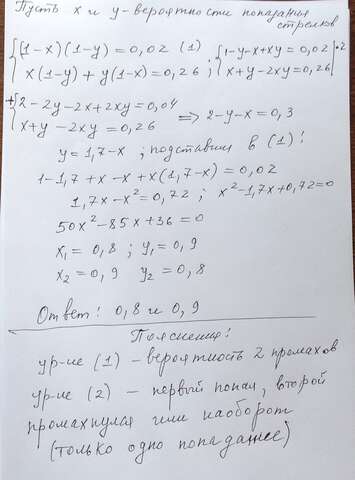 Пусть x и y-вероятности попадания
стрелков
{(1-x)(1-y)=0,02 (1) ; {1-y-x+xy=0,02 |·2
{x(1-y)+y(1-x)=0,26 ; {x+y-2xy=0,26
+{2-2y-2x+2xy=0,04
{x+y-2xy=0,26 => 2-y-x=0,3
y=1,7-x ; подставим в (1):
1-1,7+x-x+x(1,7-x)=0,02
1,7x-x²=0,72 ; x²-1,7x+0,72=0
50x²-85x+36=0
x₁=0,8 ; y₁=0,9
x₂=0,9 y₂=0,8
Ответ: 0,8 и 0,9
Пояснения:
ур-ие (1) - вероятность 2 промахов
ур-ие (2) - первый попал, второй
промахнулся или наоборот
(только одно попадание)